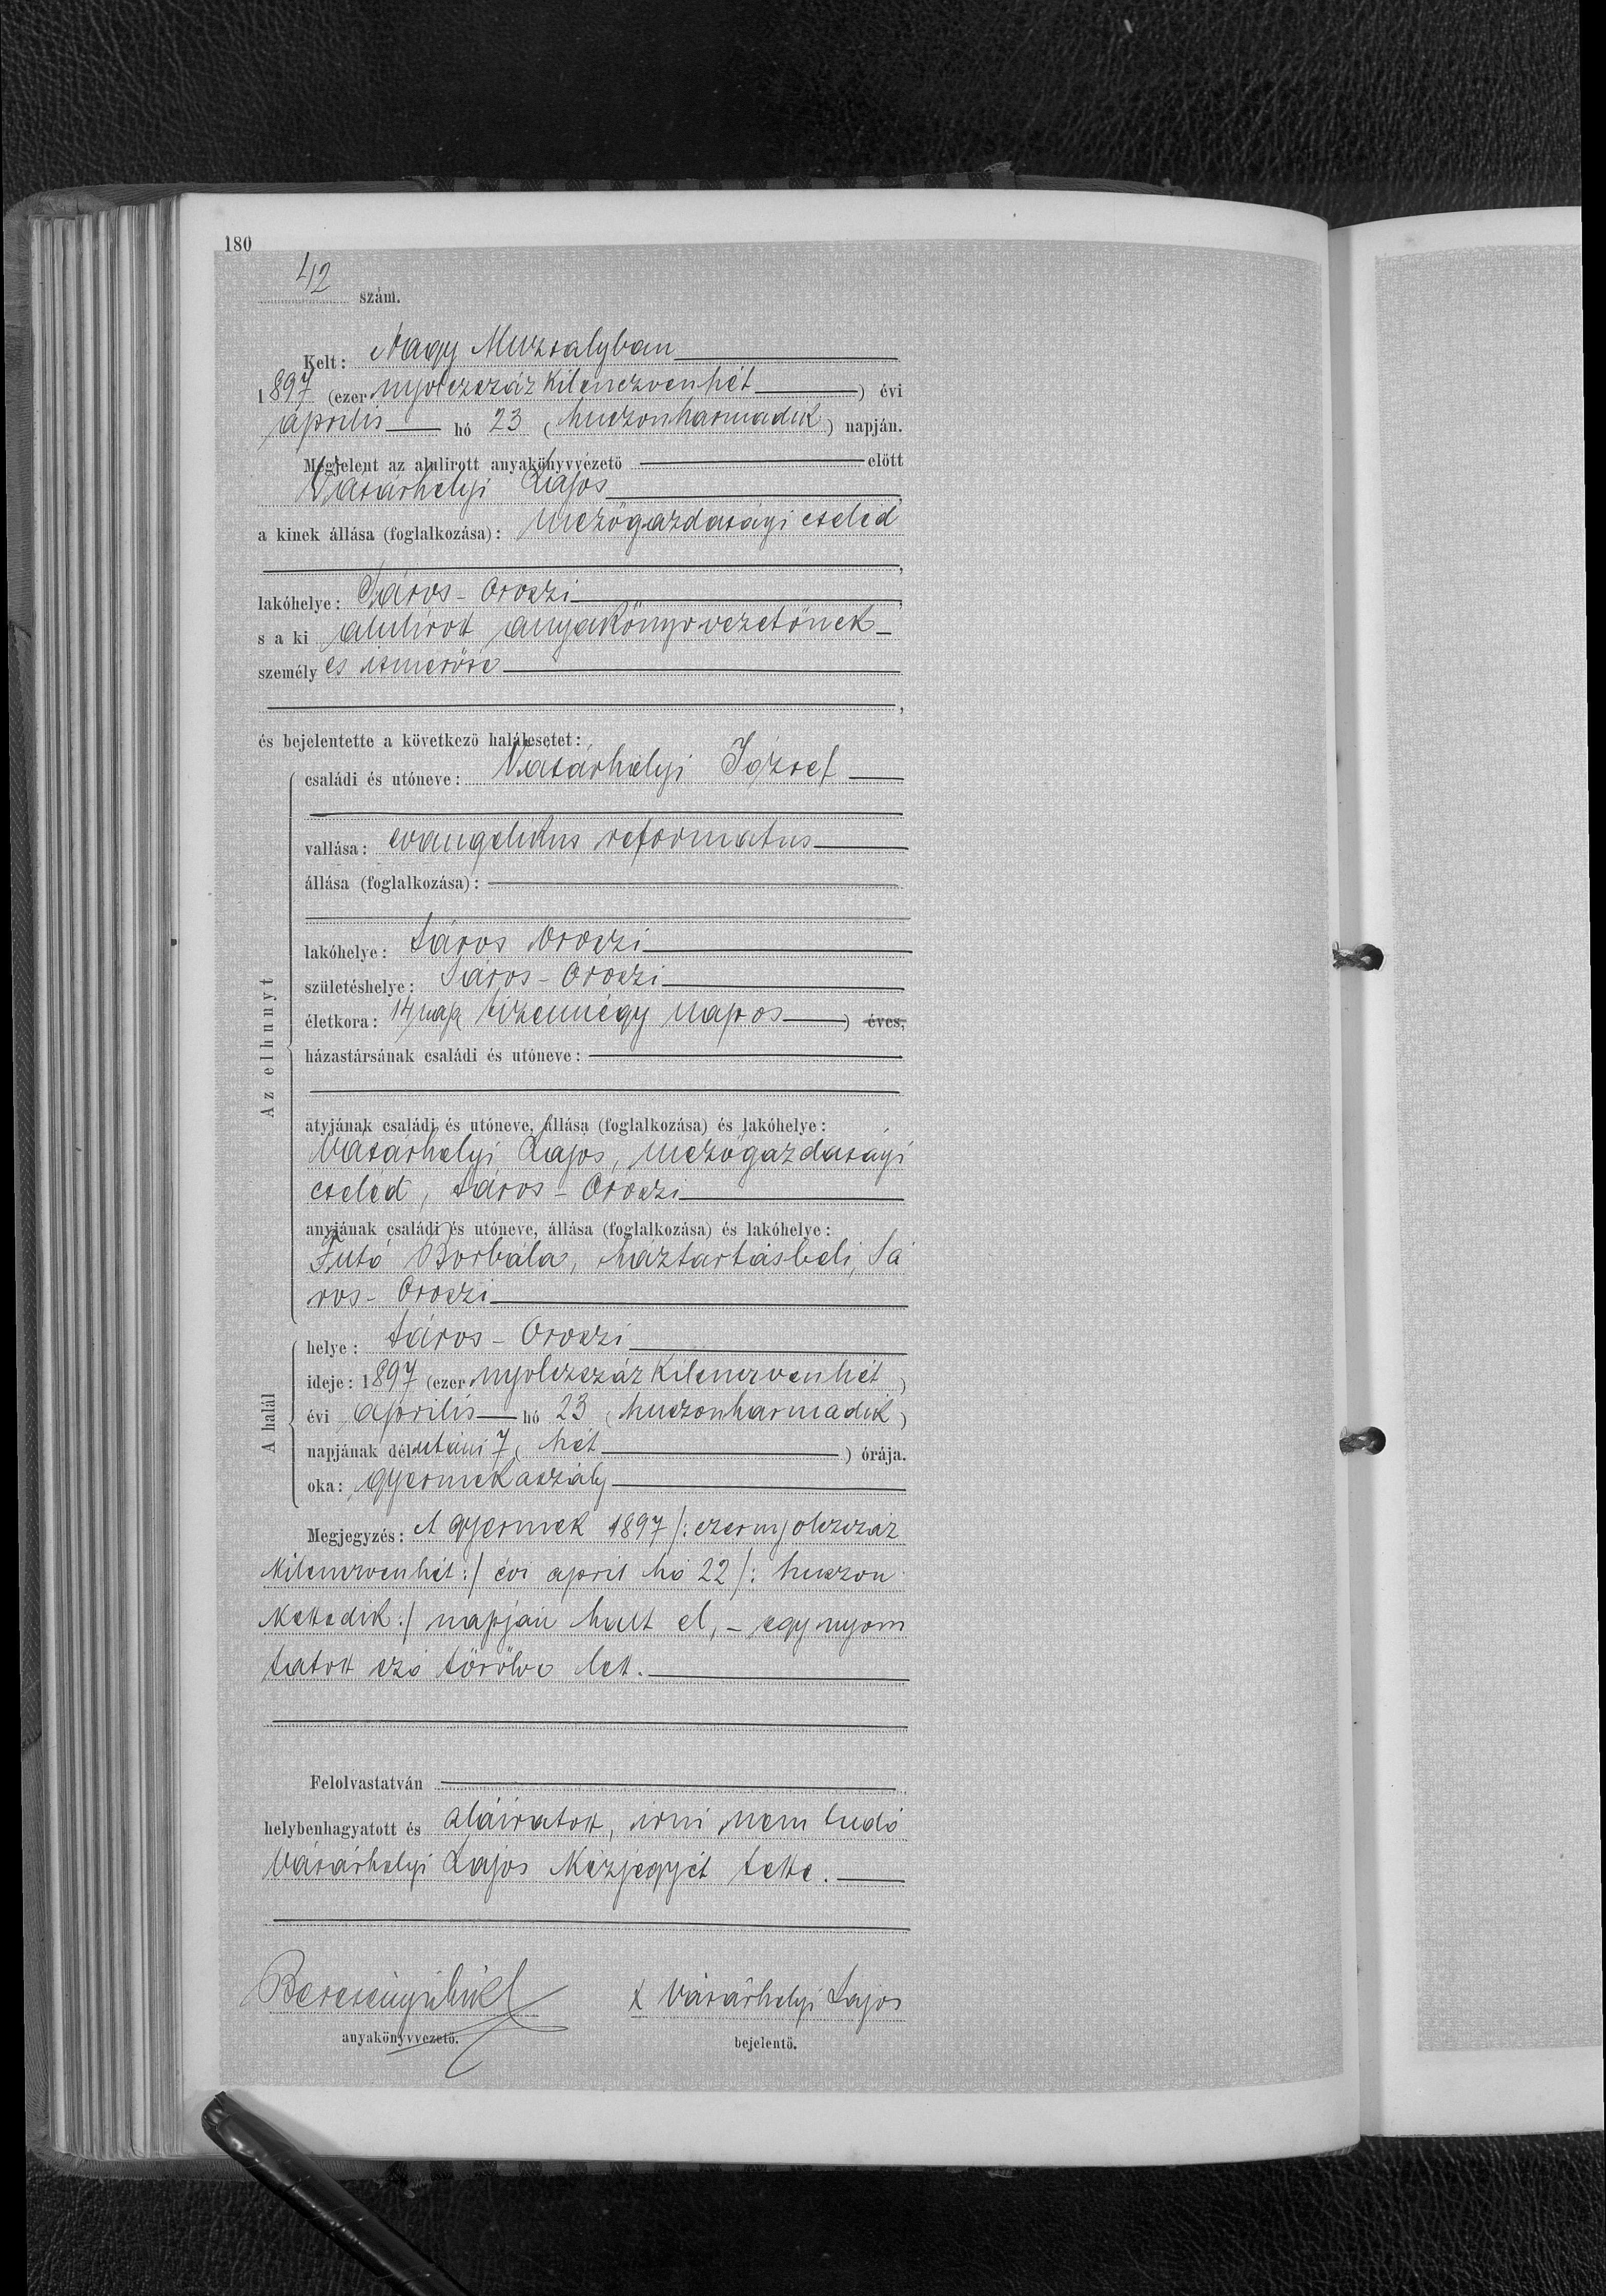 180
42 szám.
Kelt: Nagy Muzsalyban
1897 (ezer nyolczszáz kilenczvenhét) évi
április hó 23 (huszonharmadik) napján.
Megjelent az alulirott anyakönyvvezető előtt
Vásárhelyi Lajos
a kinek állása (foglalkozása): mezőgazdasági cseléd
lakóhelye: Sáros-Oroszi,
s a ki alulirott anyakönyvvezetőnek
személyes ismerőse
,
és bejelentette a következő halálesetet:
Az elhunyt
családi és utóneve: Vásárhelyi József
vallása: evangelikus reformatus
állása (foglalkozása):
lakóhelye: Sáros Oroszi
születéshelye: Sáros-Oroszi
életkora: 14 nap( tizennégy napos) éves,
házastársának családi és utóneve:
atyjának családi és utóneve, állása (foglalkozása) és lakóhelye:
Vásárhelyi Lajos, mezőgazdasági
cseléd, Sáros-Oroszi
anyjának családi és utóneve, állása (foglalkozása) és lakóhelye:
Futó Borbála, háztartásbeli, Sá
ros-Oroszi
A halál
helye: Sáros-Oroszi
ideje: 1897 (ezer nyolczszáz kilenczvenhét)
évi április hó 23 (huszonharmadik)
napjának délutáni 7 (hét) órája.
oka: gyermekaszály
Megjegyzés: A gyermek 1897 /: ezernyolczszáz
kilenczvenhét :/ évi april hó 22 /: huszon
kettedik :/ napján halt el, - egy nyom
tatott szó törölve lett.
Felolvastatván
helybenhagyatott és aláiratott, irni nem tudó
Vásárhelyi Lajos kézjegyét tette.
x Vásárhelyi Lajos
anyakönyvvezető.
bejelentő.